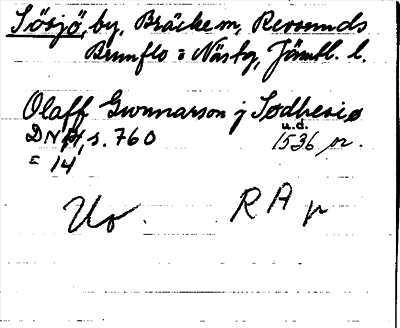 Sösjö, by, Bräcke sn, Revsunds
Brunflo o Näskn, Jämtl. l.
Olaff Gwnnarson j Sødhesiø
DN 14, s. 760
u.d.
1536 pr.
= 14
Uo. R A p